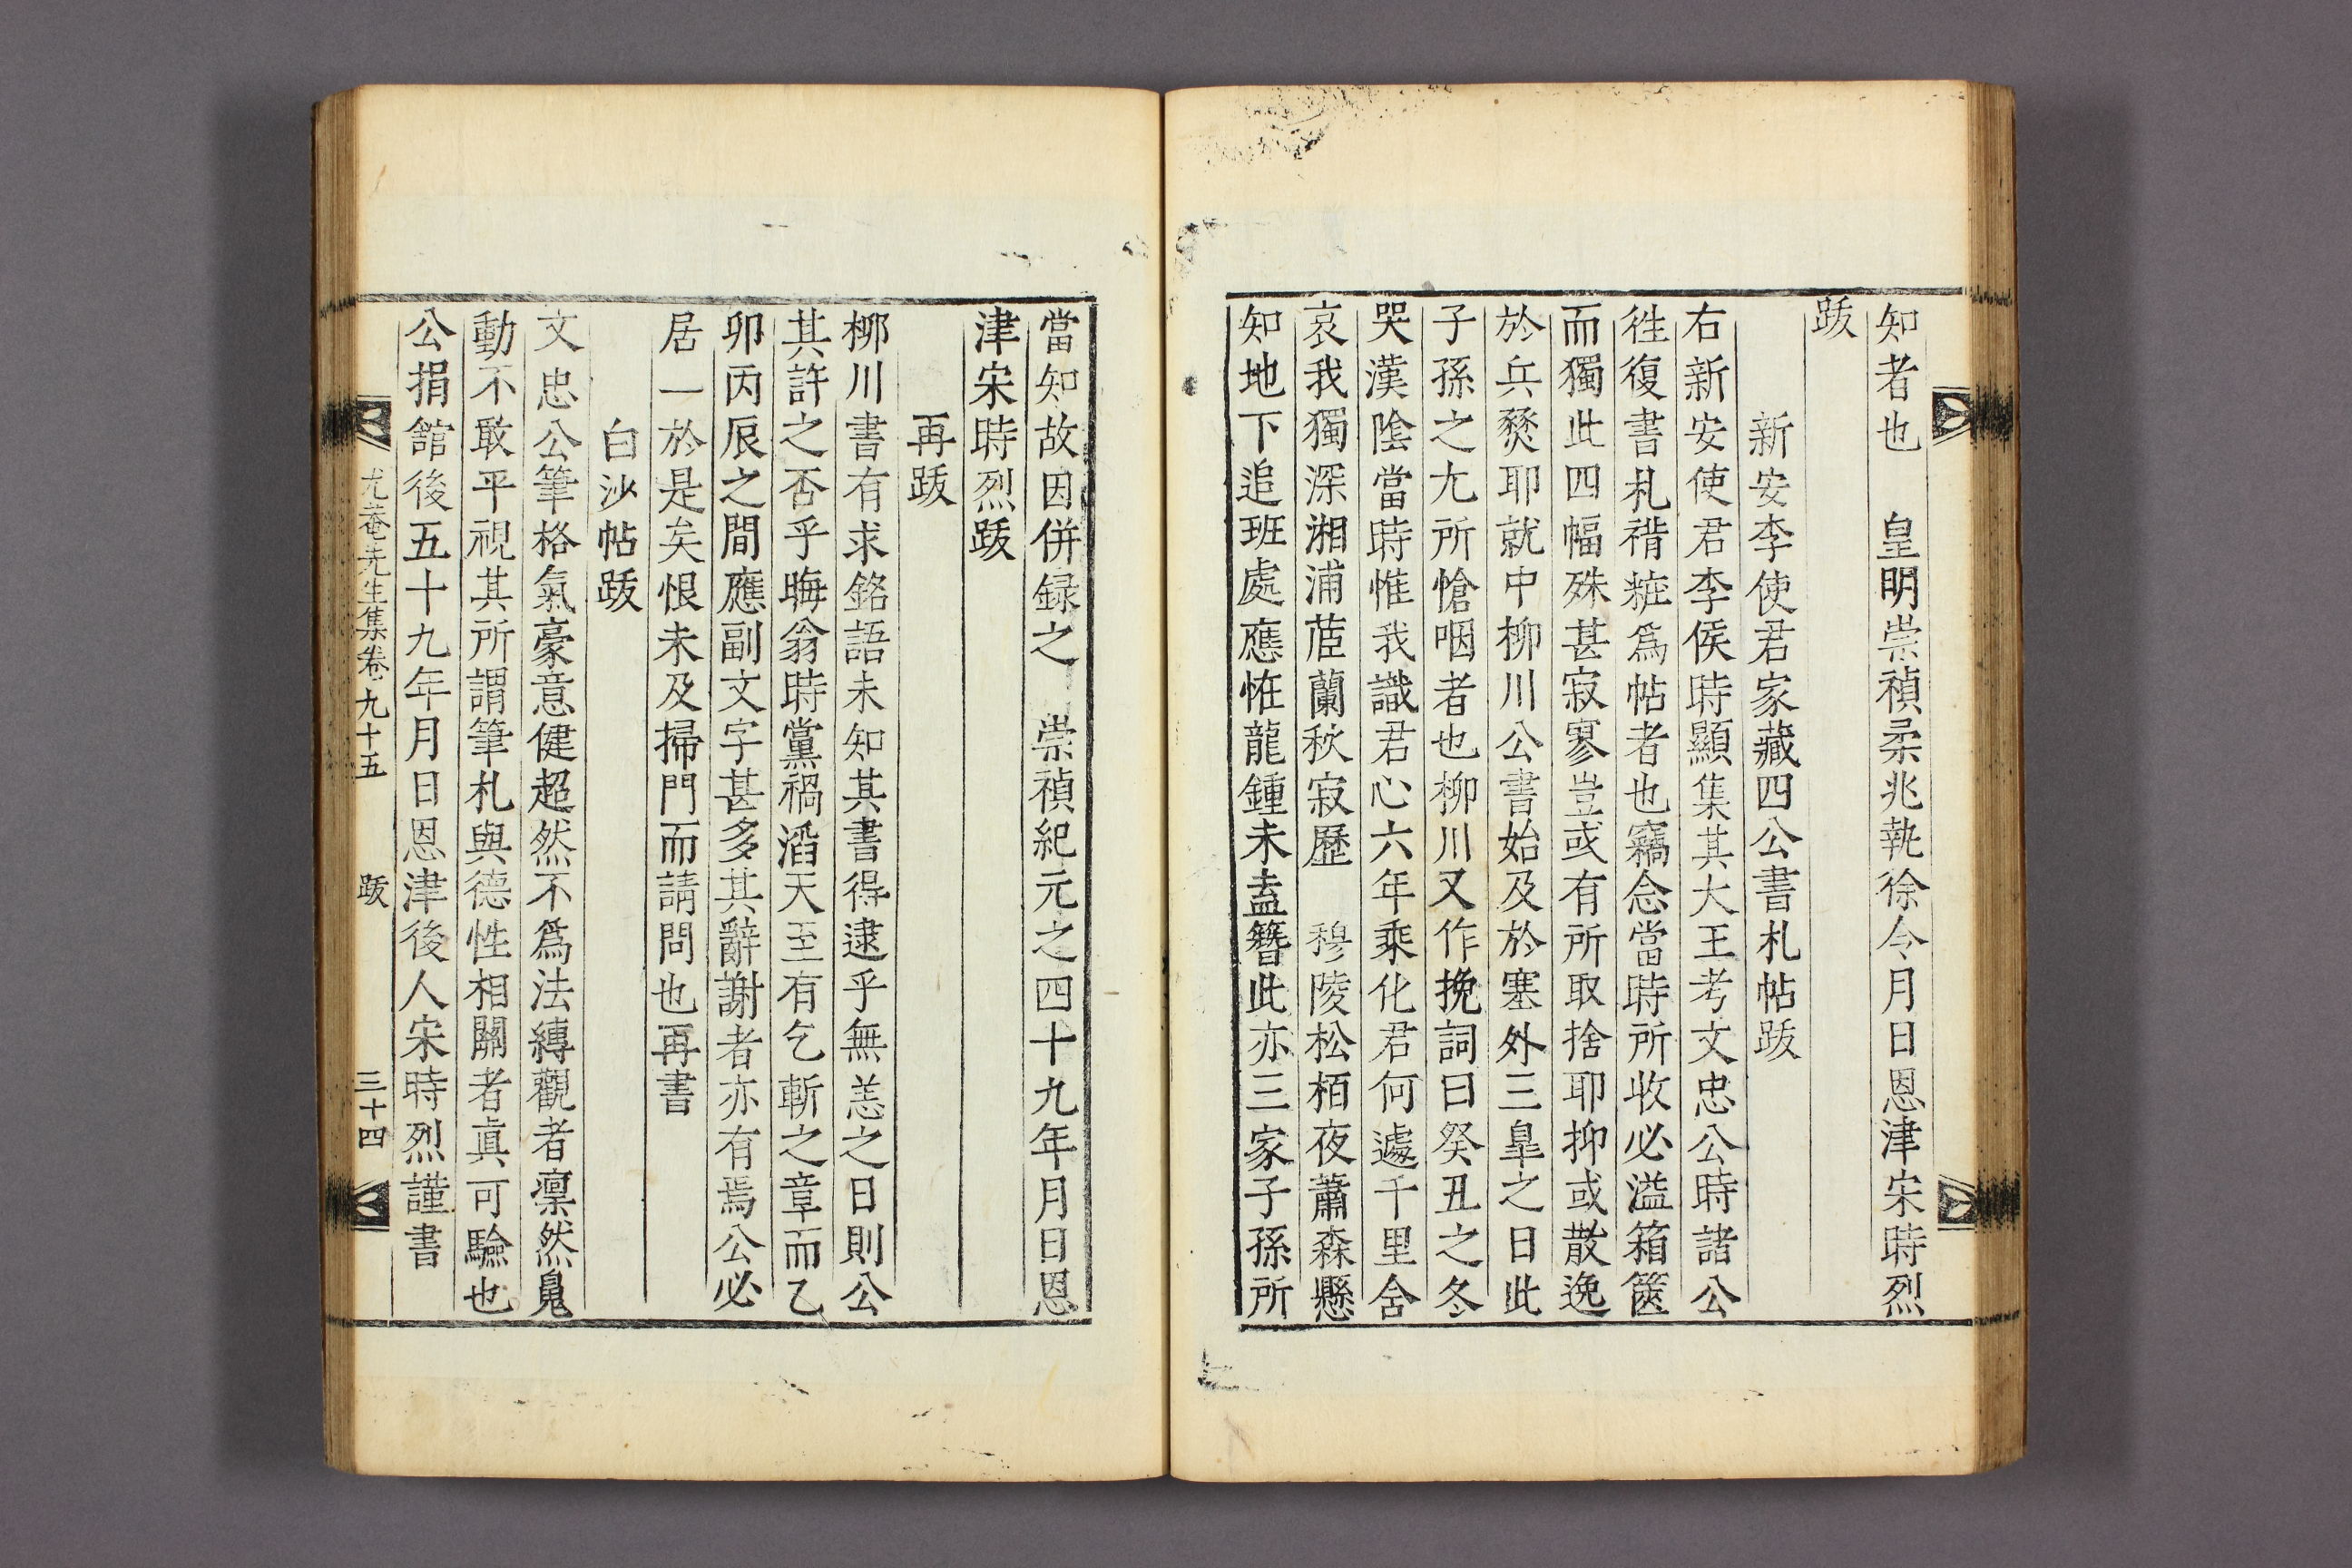 知者也　皇明崇禎柔兆執徐今月日恩津宋時烈
跋
新安李使君家藏四公書札帖跋
右新安使君李侯時顯集其大王考文忠公時諸公
徃復書札褙粧爲帖者也竊念當時所收必溢箱篋
而獨此四幅殊甚寂寥豈或有所取捨耶抑或散逸
於兵燹耶就中柳川公書始及於塞外三臯之日此
子孫之尤所愴咽者也柳川又作挽詞曰癸丑之冬
哭漢陰當時惟我識君心六年乘化君何遽千里舍
哀我獨深湘浦茝蘭秋寂歷　穆陵松栢夜蕭森懸
知地下追班處應恠龍鍾未盍簪此亦三家子孫所
當知故因併録之　崇禎紀元之四十九年月日恩
津宋時烈跋
再跋
柳川書有求銘語未知其書得逮乎無恙之日則公
其許之否乎晦翁時黨禍滔天至有乞斬之章而乙
卯丙辰之間應副文字甚多其辭謝者亦有焉公必
居一於是矣恨未及掃門而請問也再書
白沙帖跋
文忠公筆格氣豪意健超然不爲法縛觀者凜然鳧
動不敢平視其所謂筆札與德性相關者眞可驗也
公捐舘後五十九年月日恩津後人宋時烈謹書
尤菴先生集卷九十五　跋　三十四